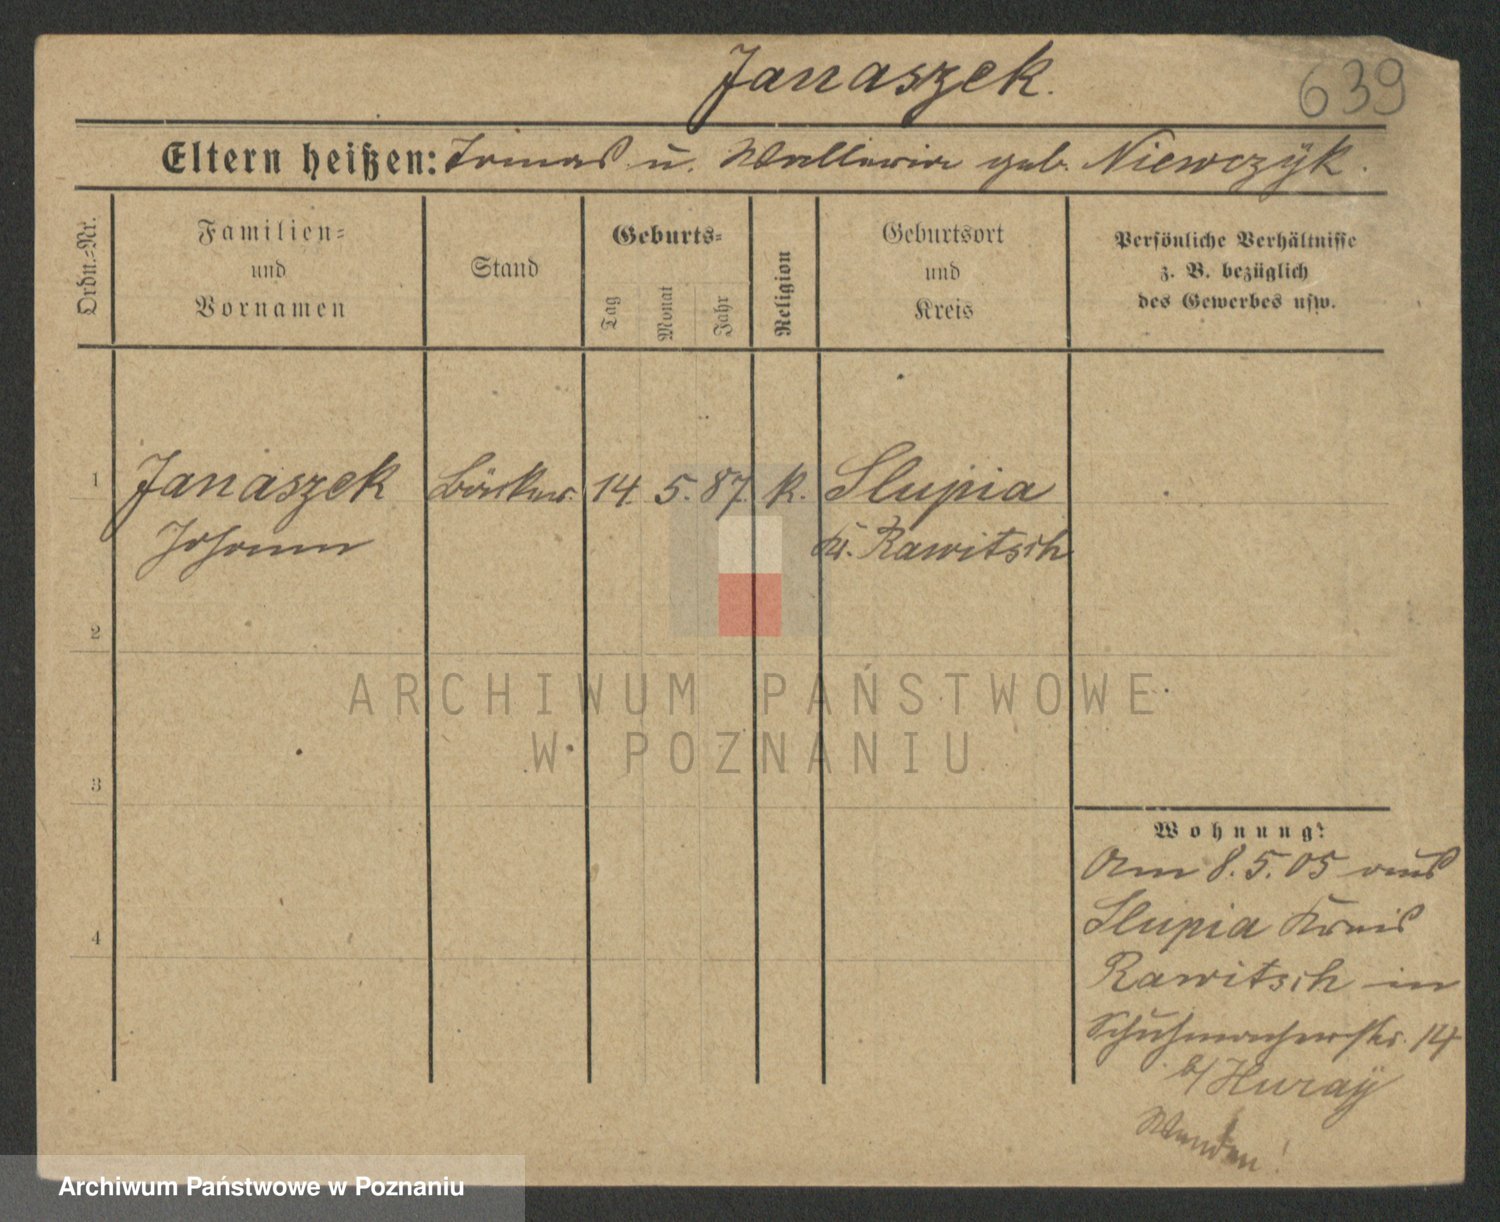 Janaszek.
639
Eltern heißen: Tomas u. Walleria geb. Niewczÿk.
Ordn.-Nr.
Familien- und Vornamen
Stand
Geburts-
Tag
Monat
Jahr
Religion
Geburtsort und Kreis
Persönliche Verhältnisse
z. B. bezüglich
des Gewerbes usw.
1 Janaszek Bäcker. 14. 5. 87. k. Slupia
Johann Kr. Rawitsch
2
3
4
Wohnung:
Am 8.5.05 aus
Slupia Kreis
Rawitsch in
Schuhmacherstr. 14
b/ Huraÿ
Wenden!
ARCHIWUM PAŃSTWOWE
W POZNANIU
Archiwum Państwowe w Poznaniu